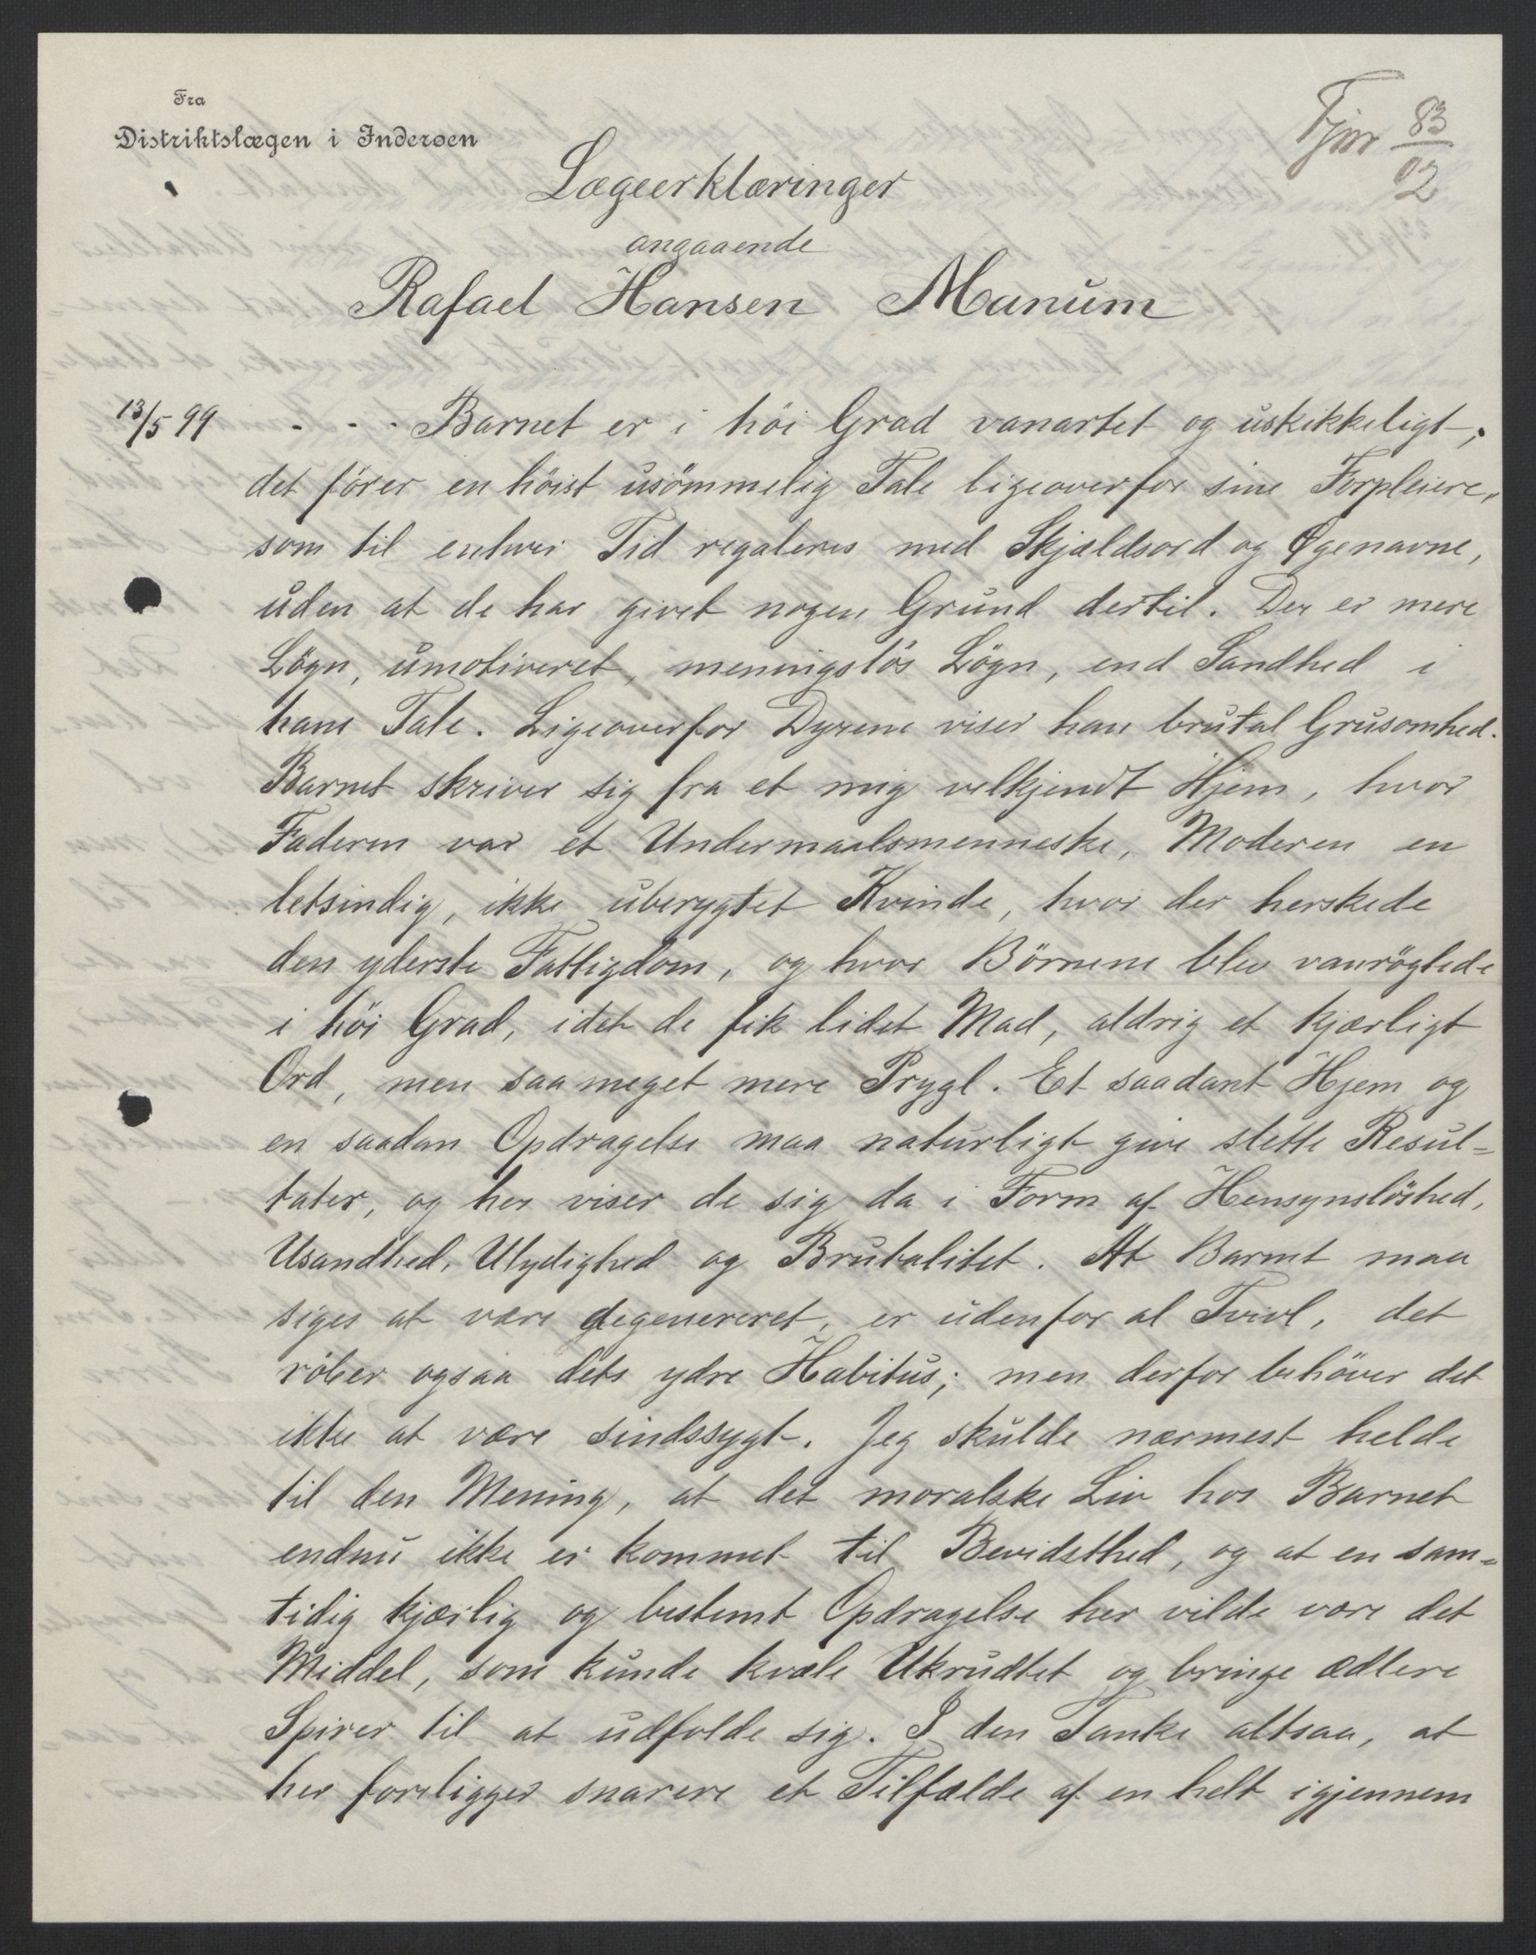 Fra
Distriktslægen i Inderøen
Fjnr 83/02
Lægeerklæringer
angaaende
Rafael Hansen Manum
13/5 99 - - - Barnet er i höi Grad vanartet og uskikkeligt,
det förer en höist usömmelig Tale ligeoverfor sine Forpleiere,
som til enhver Tid regaleres med Skjældsord og Øgenavne,
uden at de har givet nogen Grund dertil. Der er mere
Lögn, umotiveret, meningslös Lögn, end Sandhed i
hans Tale. Ligeoverfor Dyrene viser han brutal Grusomhed.
Barnet skriver sig fra et mig velkjendt Hjem, hvor
Faderen var et Undermaalsmenneske, Moderen en
letsindig, ikke uberygtet Kvinde, hvor der herskede
den yderste Fattigdom, og hvor Börnene blev vanrögtede
i höi Grad, idet de fik lidet Mad, aldrig et kjærligt
Ord, men saameget mere Prygl. Et saadant Hjem og
en saadan Opdragelse maa naturligt give slette Resul=
tater, og her viser de sig da i Form af Hensynslöshed,
Usandhed, Ulydighed og Brutalitet. At Barnet maa
siges at være degenereret, er udenfor al Tvivl, det
röber ogsaa dets ydre Habitus; men derfor behöver det
ikke at være sindssygt. Jeg skulde nærmest helde
til den Mening, at det moralske Liv hos Barnet
endnu ikke er kommet til Bevidsthed, og at en sam=
tidig kjærlig og bestemt Opdragelse her vilde være det
Middel, som kunde kvæle Ukrudtet og bringe ædlere
Spirer til at udfolde sig. I den Tanke altsaa, at
her foreligger snarere et Tilfælde af en helt igjennem